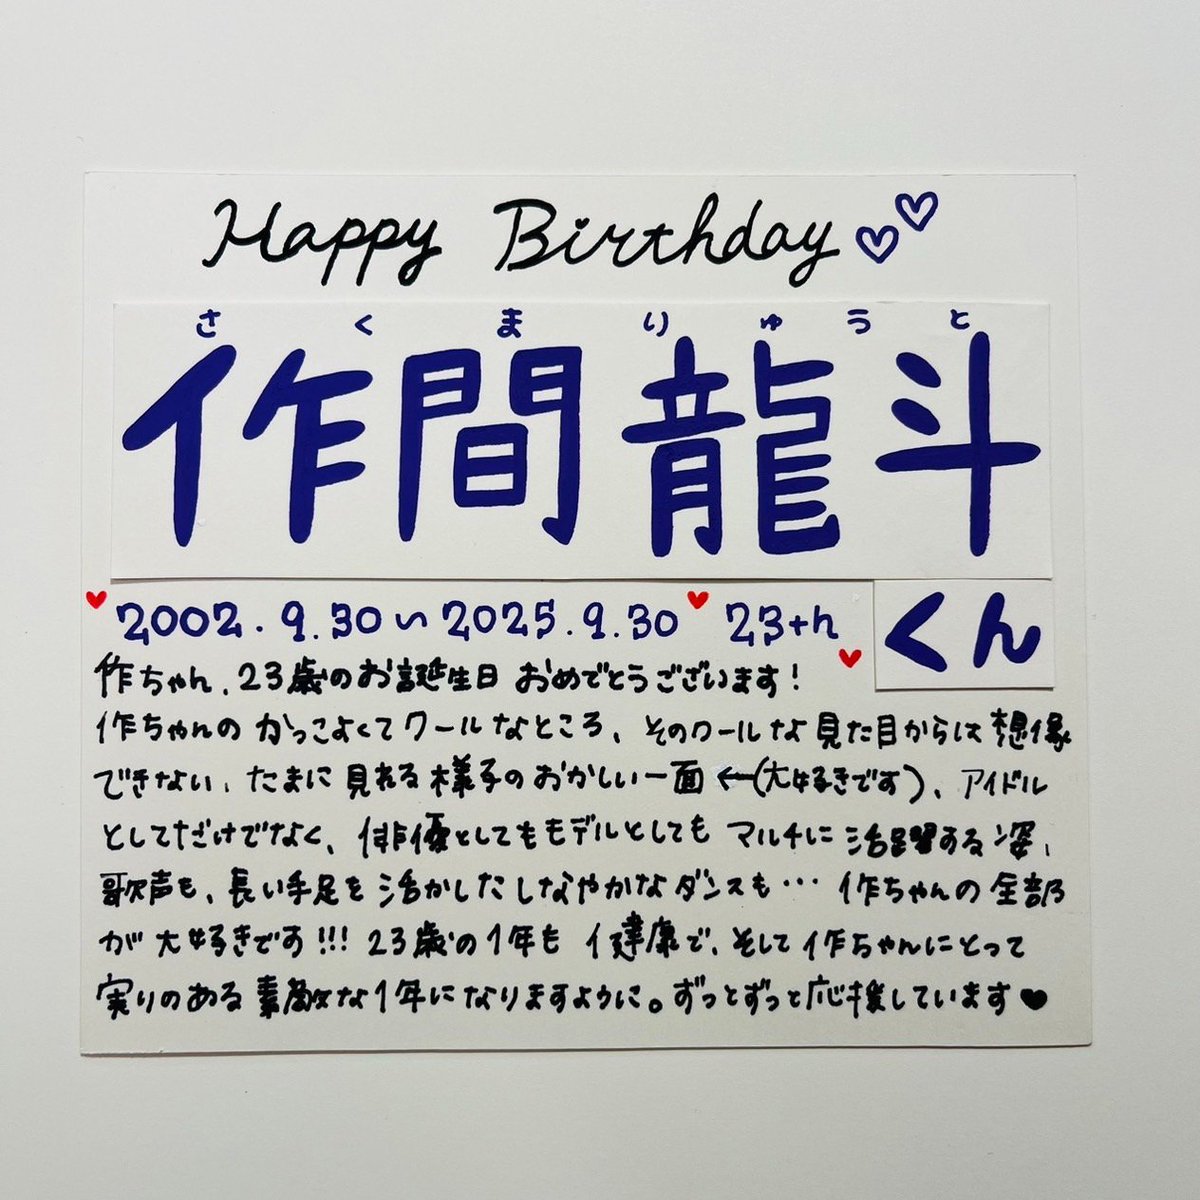 Happy Birthday
さくまりゅうと
作間龍斗
くん
2002.9.30〜2025.9.30 23th
作ちゃん、23歳のお誕生日おめでとうございます!
作ちゃんのかっこよくてクールなところ、そのクールな見た目からは想像
できない、たまに見れる様子のおかしい一面←(大好きです)、アイドル
としてだけでなく、俳優としてもモデルとしてもマルチに活躍する姿、
歌声も、長い手足を活かしたしなやかなダンスも…作ちゃんの全部
が大好きです!!!23歳の1年も健康で、そして作ちゃんにとって
実りのある素敵な1年になりますように。ずっとずっと応援しています♥